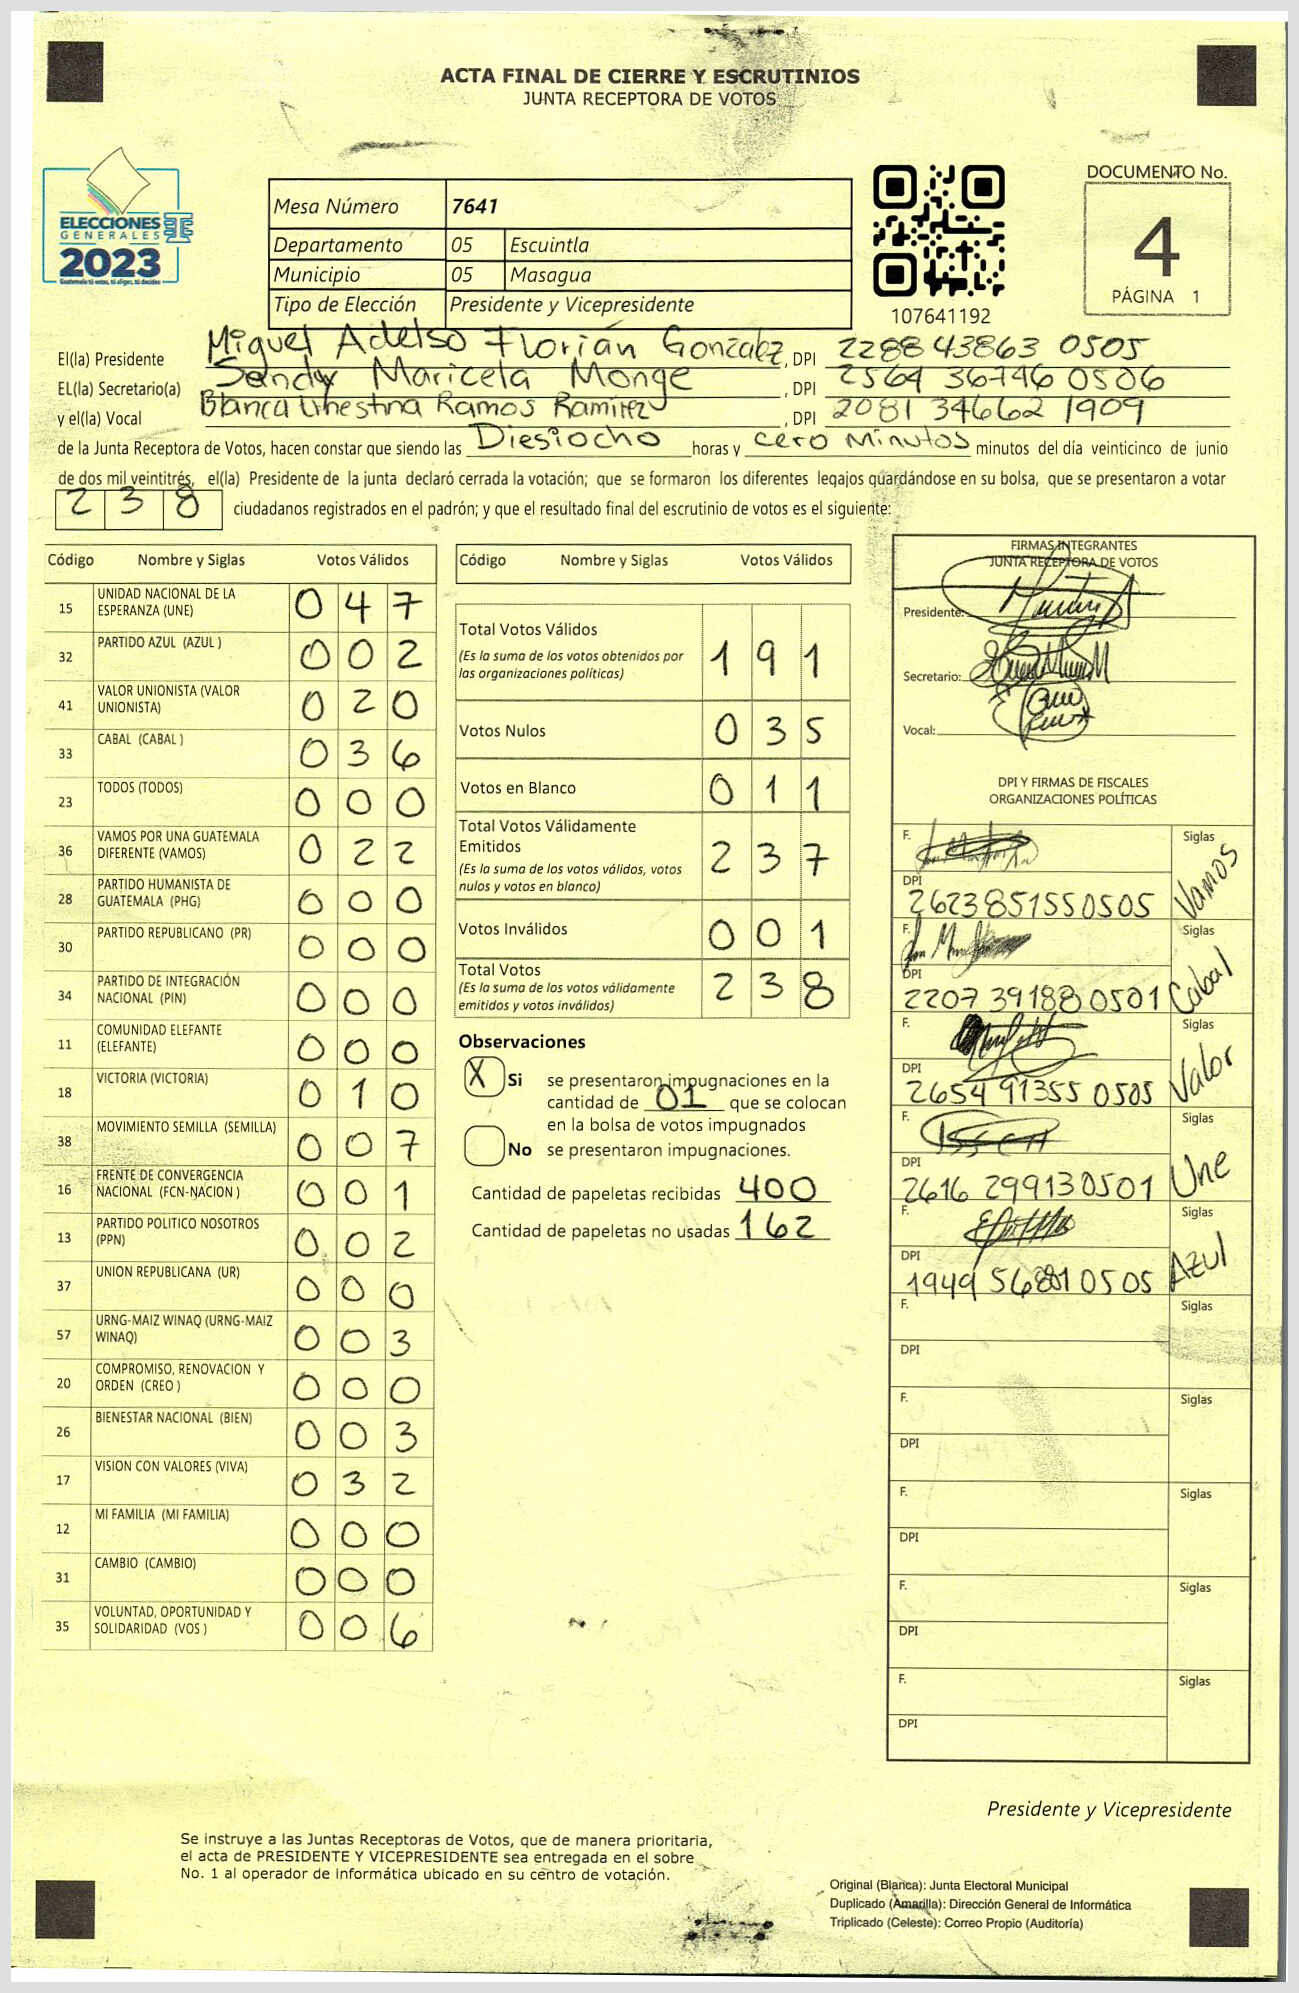 ACTA FINAL DE CIERRE Y ESCRUTINIOS
JUNTA RECEPTORA DE VOTOS
ELECCIONES
GENERALES
2023
Mesa Número 7641
Departamento 05 Escuintla
Municipio 05 Masagua
Tipo de Elección Presidente y Vicepresidente
107641192
DOCUMENTO No.
4
PÁGINA 1
El(la) Presidente Miguel Adelso Florián Gonzalez, DPI 2288 43863 0505
EL(la) Secretario(a) Sandy Maricela Monge, DPI 2564 36746 0506
y el(la) Vocal Blanca Ramos Ramirez, DPI 2081 34662 1909
de la Junta Receptora de Votos, hacen constar que siendo las Diesiocho horas y cero Minutos minutos del día veinticinco de junio
de dos mil veintitrés, el(la) Presidente de la junta declaró cerrada la votación; que se formaron los diferentes legajos guardándose en su bolsa, que se presentaron a votar
238 ciudadanos registrados en el padrón; y que el resultado final del escrutinio de votos es el siguiente:
Código Nombre y Siglas Votos Válidos
15 UNIDAD NACIONAL DE LA ESPERANZA (UNE) 047
32 PARTIDO AZUL (AZUL ) 002
41 VALOR UNIONISTA (VALOR UNIONISTA) 020
33 CABAL (CABAL ) 036
23 TODOS (TODOS) 000
36 VAMOS POR UNA GUATEMALA DIFERENTE (VAMOS) 022
28 PARTIDO HUMANISTA DE GUATEMALA (PHG) 000
30 PARTIDO REPUBLICANO (PR) 000
34 PARTIDO DE INTEGRACIÓN NACIONAL (PIN) 000
11 COMUNIDAD ELEFANTE (ELEFANTE) 000
18 VICTORIA (VICTORIA) 010
38 MOVIMIENTO SEMILLA (SEMILLA) 007
16 FRENTE DE CONVERGENCIA NACIONAL (FCN-NACION ) 001
13 PARTIDO POLITICO NOSOTROS (PPN) 002
37 UNION REPUBLICANA (UR) 000
57 URNG-MAIZ WINAQ (URNG-MAIZ WINAQ) 003
20 COMPROMISO, RENOVACION Y ORDEN (CREO ) 000
26 BIENESTAR NACIONAL (BIEN) 003
17 VISION CON VALORES (VIVA) 032
12 MI FAMILIA (MI FAMILIA) 000
31 CAMBIO (CAMBIO) 000
35 VOLUNTAD, OPORTUNIDAD Y SOLIDARIDAD (VOS ) 006
Código Nombre y Siglas Votos Válidos
Total Votos Válidos 191
(Es la suma de los votos obtenidos por
las organizaciones políticas)
Votos Nulos 035
Votos en Blanco 011
Total Votos Válidamente
Emitidos 237
(Es la suma de los votos válidos, votos
nulos y votos en blanco)
Votos Inválidos 001
Total Votos 238
(Es la suma de los votos válidamente
emitidos y votos inválidos)
Observaciones
X Si se presentaron impugnaciones en la
cantidad de 01 que se colocan
en la bolsa de votos impugnados
No se presentaron impugnaciones.
Cantidad de papeletas recibidas 400
Cantidad de papeletas no usadas 162
FIRMAS INTEGRANTES
JUNTA RECEPTORA DE VOTOS
Presidente:
Secretario:
Vocal:
DPI Y FIRMAS DE FISCALES
ORGANIZACIONES POLÍTICAS
F. Siglas Vamos
DPI 2623851550505
F. Siglas Cabal
DPI 2207 39188 0501
F. Siglas Valor
DPI 2654 91355 0505
F. Siglas Une
DPI 2616 299130501
F. Siglas Azul
DPI 1949 0505
F. Siglas
DPI
F. Siglas
DPI
F. Siglas
DPI
F. Siglas
DPI
F. Siglas
DPI
Presidente y Vicepresidente
Se instruye a las Juntas Receptoras de Votos, que de manera prioritaria,
el acta de PRESIDENTE Y VICEPRESIDENTE sea entregada en el sobre
No. 1 al operador de informática ubicado en su centro de votación.
Original (Blanca): Junta Electoral Municipal
Duplicado (Amarilla): Dirección General de Informática
Triplicado (Celeste): Correo Propio (Auditoría)